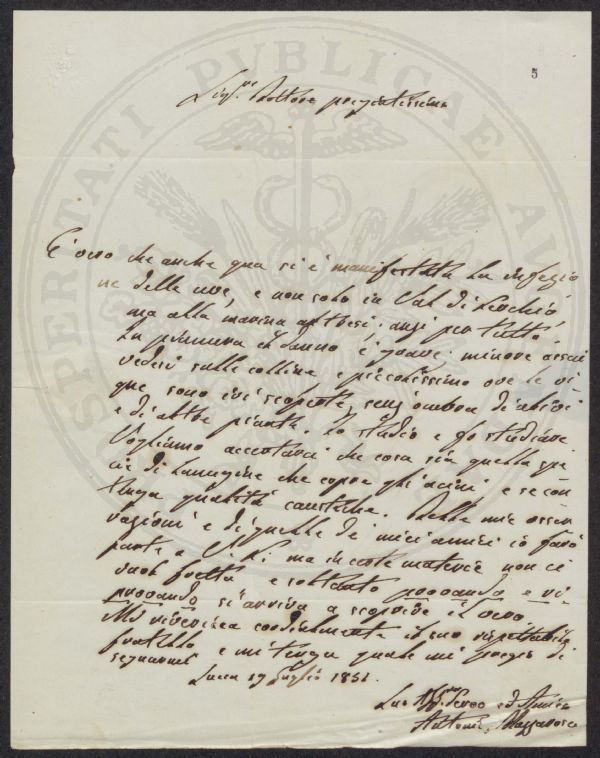 5
Sig.re Dottore pregiatissimo
È vero che anche qua si è manifestata la infezio
ne delle uve, e non solo in Val di Serchio
ma alla marina altresì, anzi per tutto.
In pianura il danno è grave: minore assai
vedesi sulle colline e piccolissimo ove le vi
gne sono ivi scoperte, senz'ombra di ulivi
e di altre piante. Io studio e fo studiare.
Vogliamo accertarci che cosa sia quella spe
cie di lanugine che copre gli acini e se con
tenga qualità caustiche. Delle mie osser
vazioni e di quelle di miei amici io farò
parte a V. S. ma in certe materie non ci
vuol fretta e soltanto provando e ri
provando si arriva a scoprire il vero.
Mi riverisca cordialmente il suo rispettabile
fratello e mi tenga quale mi pregio di
segnarmi
Lucca 19 Luglio 1851
Suo Servo ed Amico
Antonio Mazzarosa
SPERITATI PUBLICAE